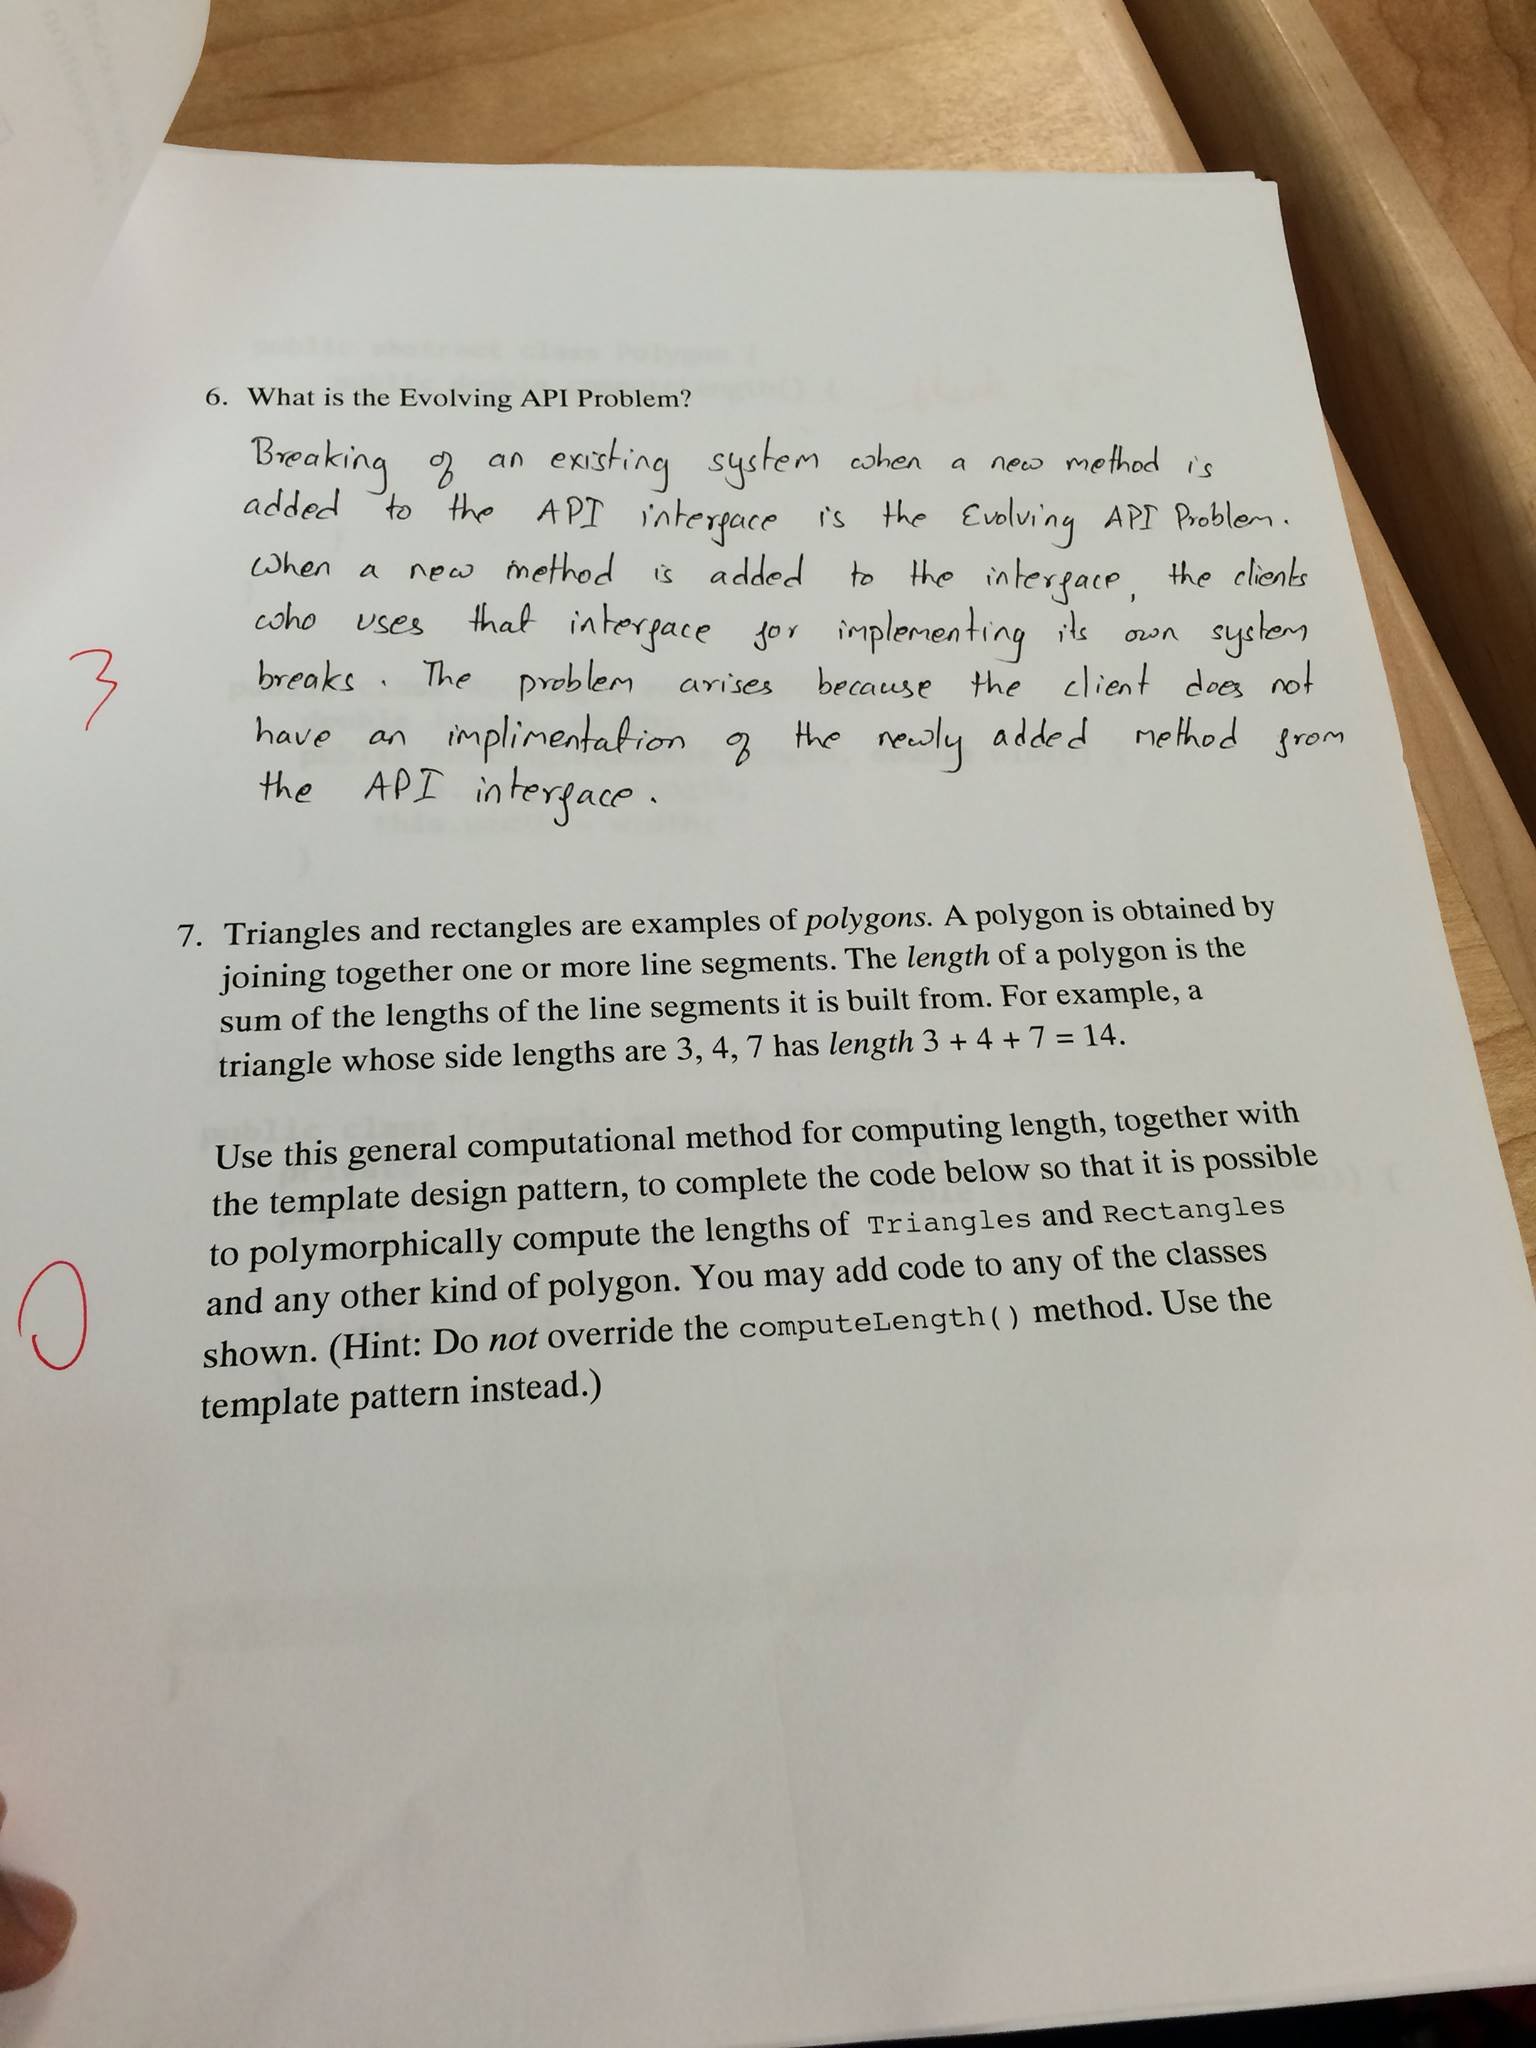 6. What is the Evolving API Problem?
Breaking of an existing system when a new method is
added to the API interface is the Evolving API Problem.
When a new method is added to the interface, the clients
who uses that interface for implementing its own system
breaks. The problem arises because the client does not
3
have an implimentation of the newly added method from
the API interface.
7. Triangles and rectangles are examples of polygons. A polygon is obtained by
joining together one or more line segments. The length of a polygon is the
sum of the lengths of the line segments it is built from. For example, a
triangle whose side lengths are 3, 4, 7 has length 3 + 4 + 7 = 14.
Use this general computational method for computing length, together with
the template design pattern, to complete the code below so that it is possible
to polymorphically compute the lengths of Triangles and Rectangles
and any other kind of polygon. You may add code to any of the classes
0
shown. (Hint: Do not override the computeLength() method. Use the
template pattern instead.)